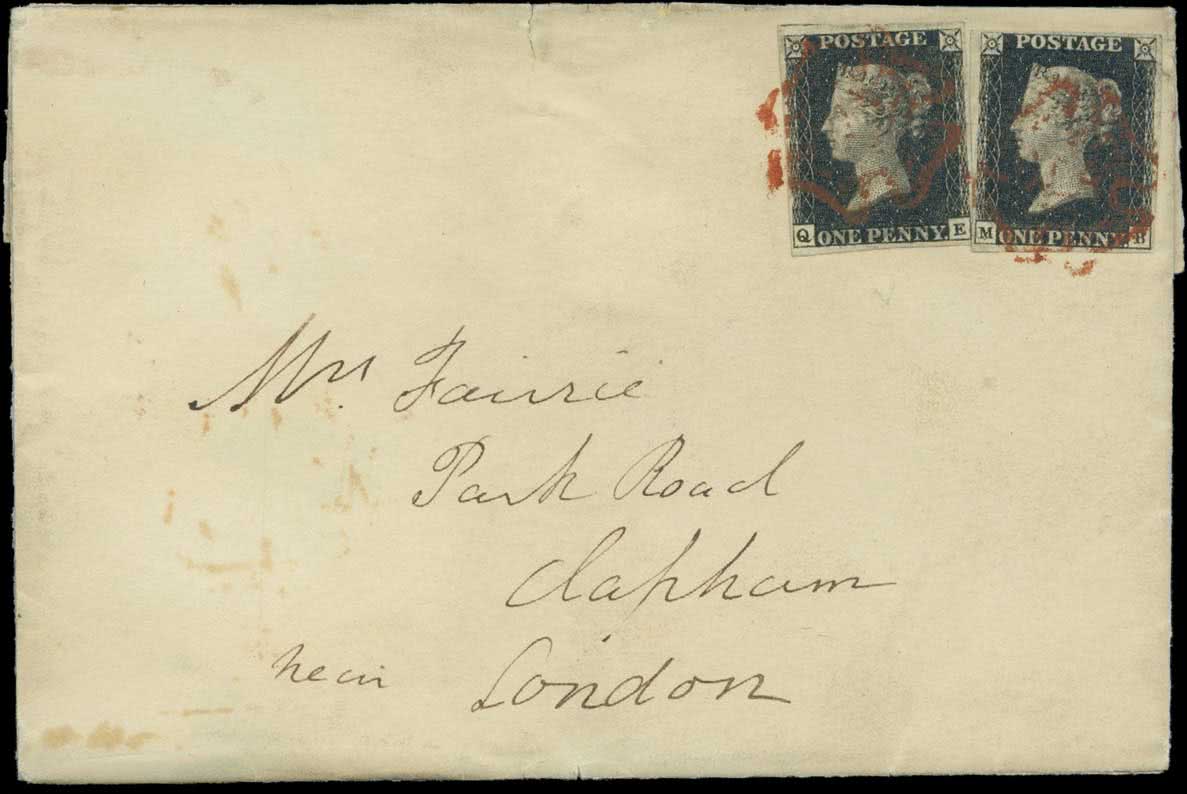 POSTAGE
Q ONE PENNY. E
POSTAGE
M ONE PENNY. B
Mrs. Fairrie
Park Road
Clapham
near London